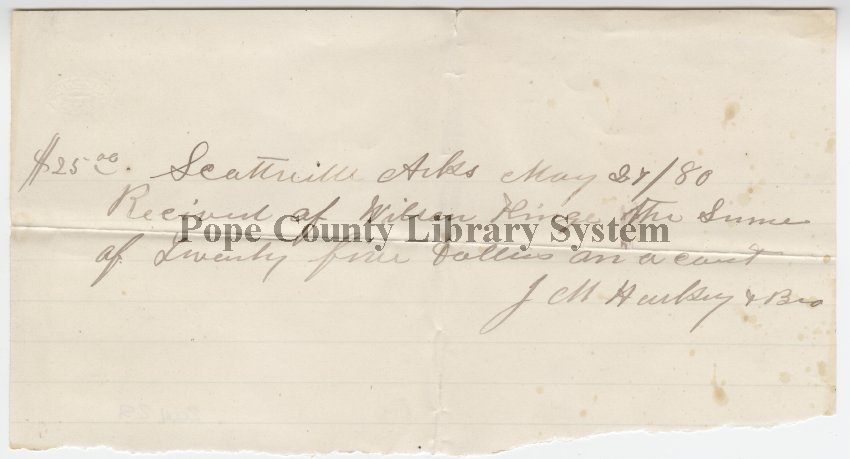 $25.00. Scottville Arks May 24/80
Recived of Wilson the Sume
Pope County Library System
of Twenty five Dollars on acount
J M Harkey & Bro